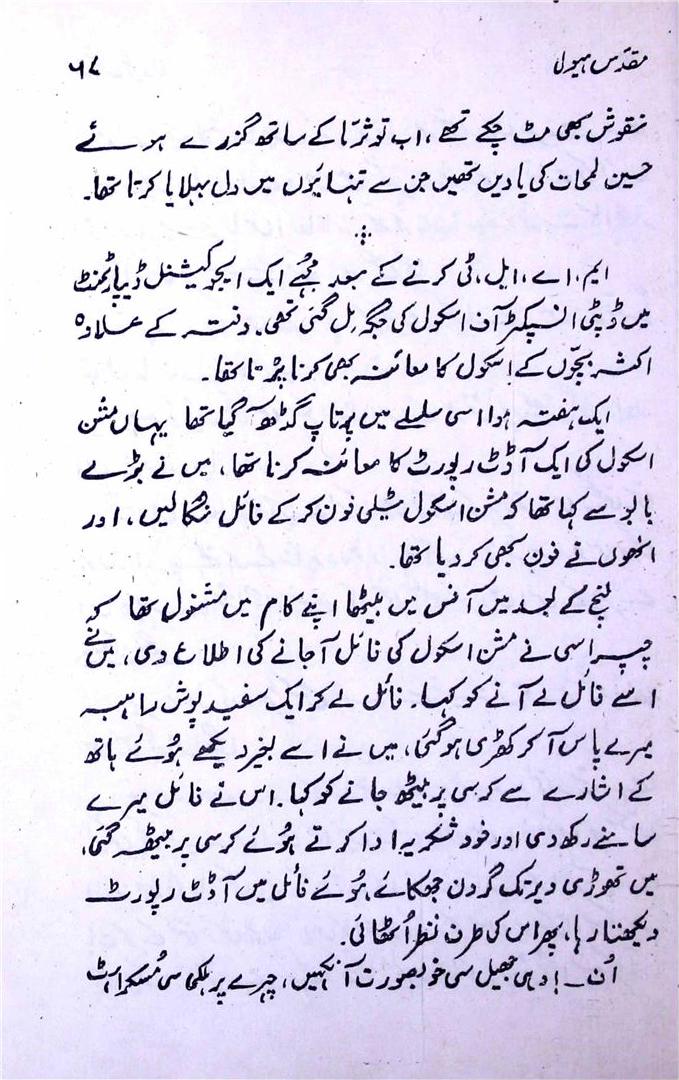 مقدّس ہیولی ۶۷
نقوش بھی مٹ چکے تھے، اب تو ثریّا کے ساتھ گزرے ہوئے
حسین لمحات کی یادیں تھیں جن سے تنہائیوں میں دل بہلایا کرتا تھا۔
ایم، اے، ایل، ٹی کرنے کے بعد مجھے ایک ایجوکیشنل ڈیپارٹمنٹ
میں ڈپٹی انسپکٹر آف اسکول کی جگہ مل گئی تھی۔ دفتر کے علاوہ
اکثر بچّوں کے اسکول کا معائنہ بھی کرنا پڑتا تھا۔
ایک ہفتہ ہوا اسی سلسلے میں پرتاپ گڈھ آگیا تھا یہاں مشن
اسکول کی ایک آڈٹ رپورٹ کا معائنہ کرنا تھا، میں نے بڑے
بابو سے کہا تھا کہ مشن اسکول ٹیلی فون کرکے فائل منگالیں، اور
انھوں نے فون بھی کردیا تھا۔
لنچ کے بعد میں آفس میں بیٹھا اپنے کام میں مشغول تھا کہ
چپراسی نے مشن اسکول کی فائل آجانے کی اطلاع دی، میں نے
اسے فائل لے آنے کو کہا۔ فائل لے کر ایک سفید پوش راہبہ
میرے پاس آکر کھڑی ہوگئی، میں نے اسے بغیر دیکھے ہوئے ہاتھ
کے اشارے سے کرسی پر بیٹھ جانے کو کہا۔ اس نے فائل میرے
سامنے رکھ دی اور خود شکریہ ادا کرتے ہوئے کرسی پر بیٹھ گئی،
میں تھوڑی دیر تک گردن جھکائے ہوئے فائل میں آڈٹ رپورٹ
دیکھتا رہا، پھر اس کی طرف نظر اُٹھائی۔
اُف۔! وہی جھیل سی خوبصورت آنکھیں، چہرے پر ہلکی سی مُسکراہٹ